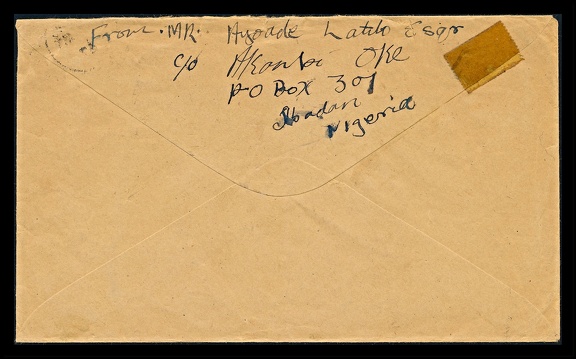 From. MR. Ayoade Latilo Esqr
c/o Akanbi OKE
PO BOX 301
Ibadan
Nigeria